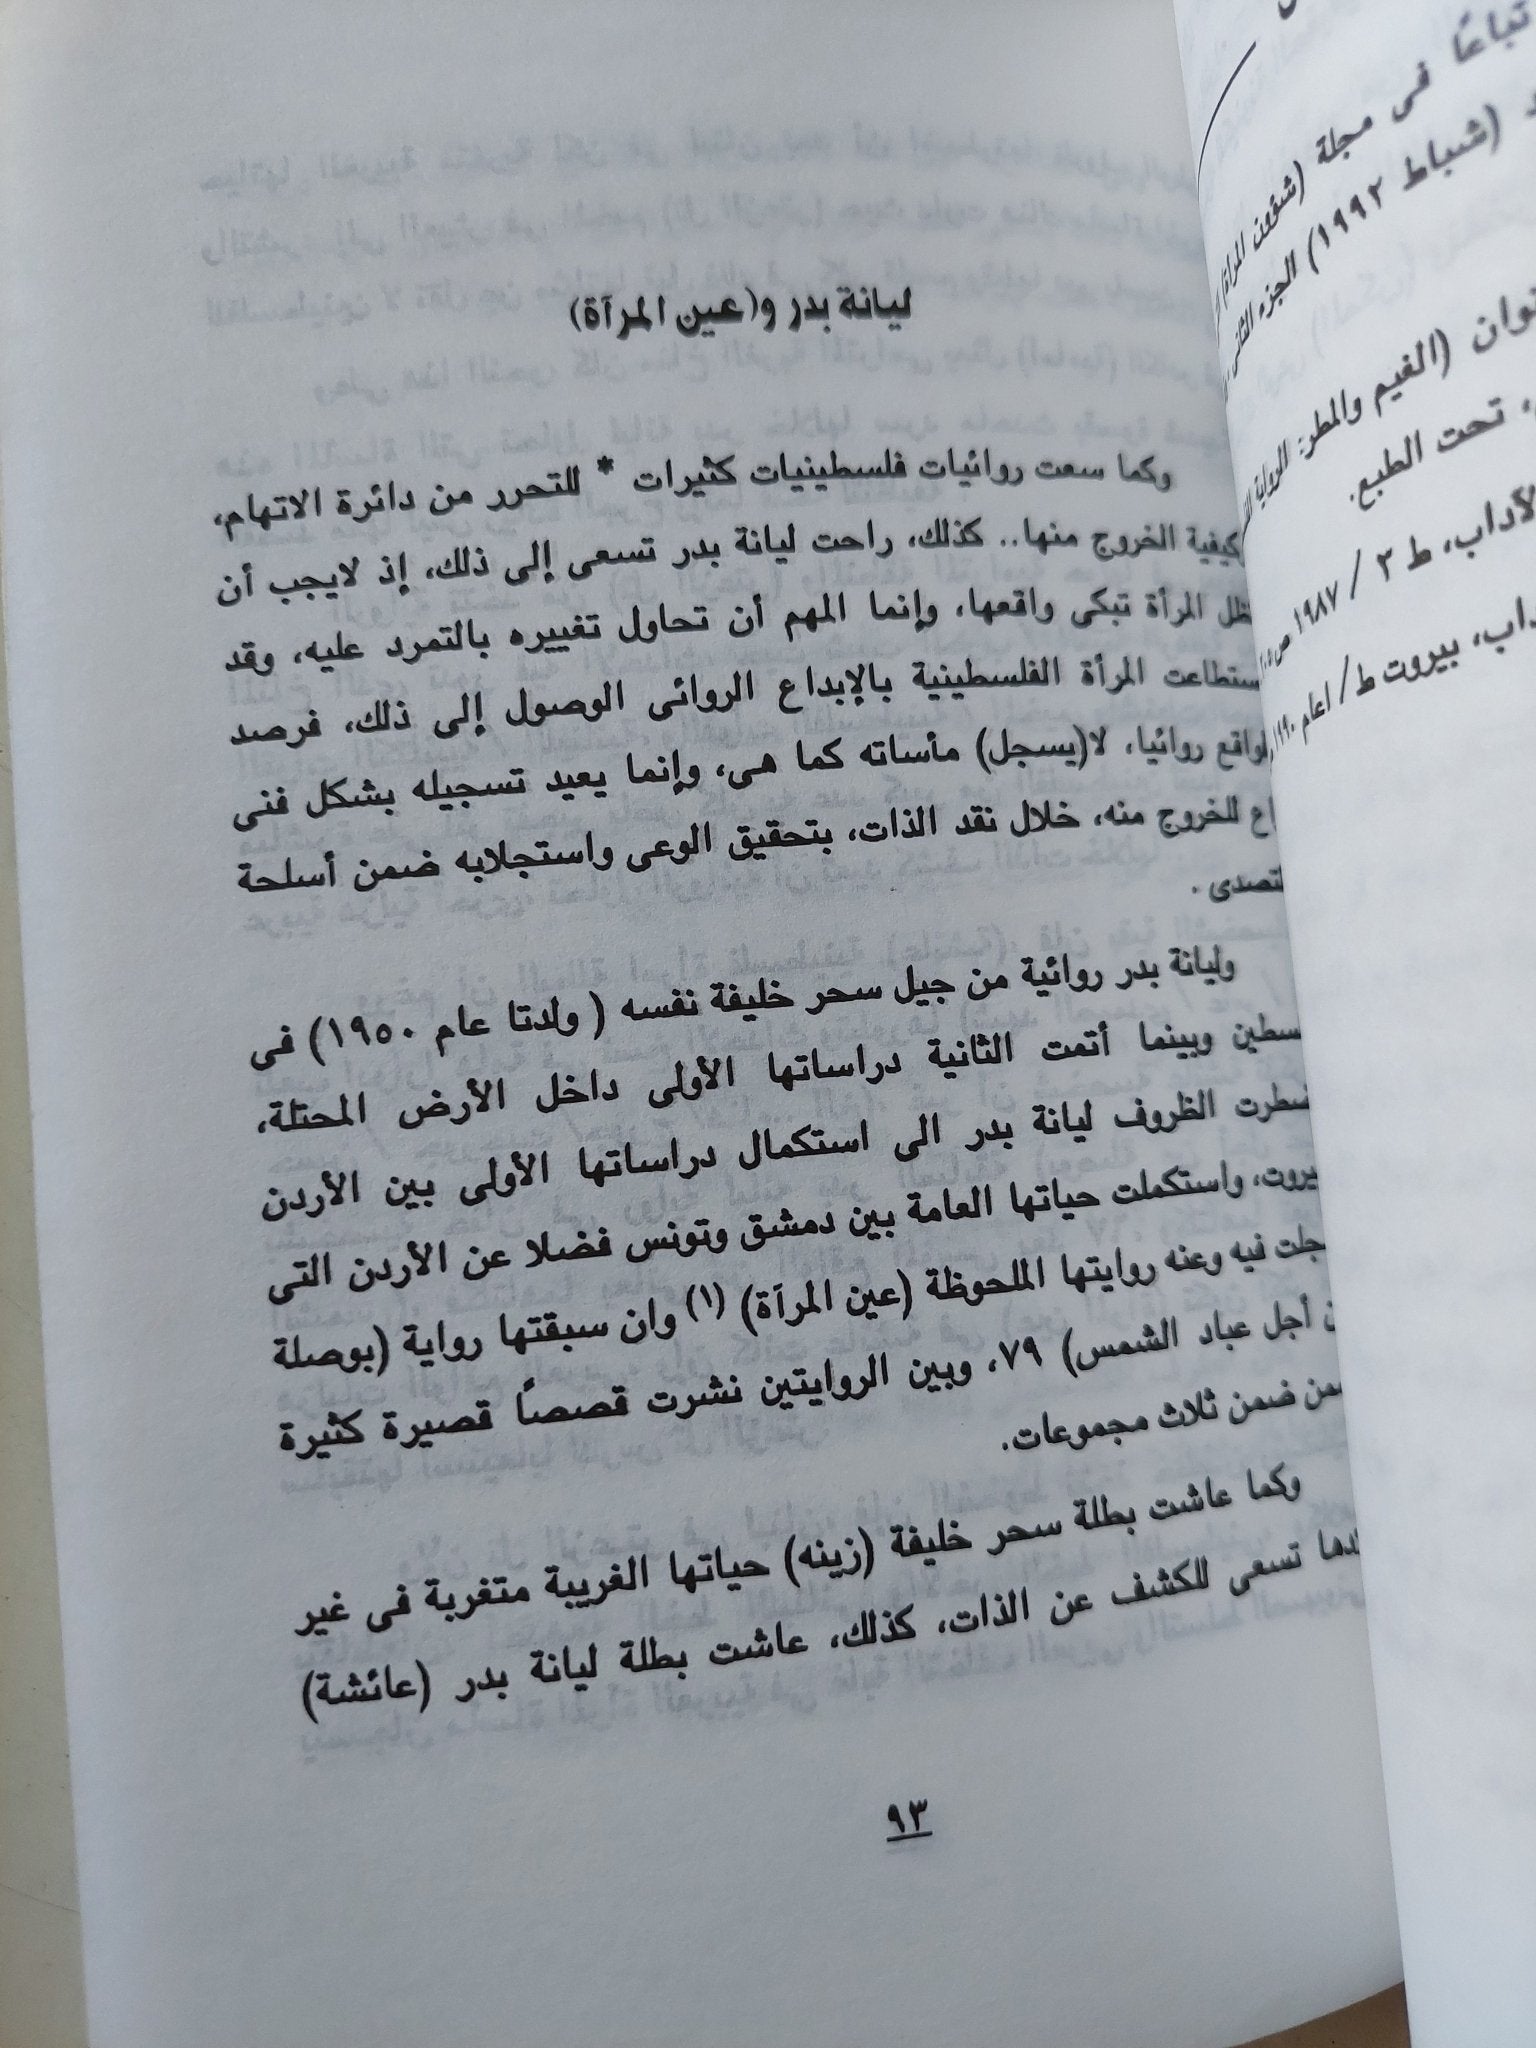 ليانة بدر و(عين المرآة)
وكما سعت روائيات فلسطينيات كثيرات * للتحرر من دائرة الاتهام،
كيفية الخروج منها.. كذلك، راحت ليانة بدر تسعى إلى ذلك، إذ لايجب أن
تظل المرأة تبكى واقعها، وإنما المهم أن تحاول تغييره بالتمرد عليه، وقد
ستطاعت المرأة الفلسطينية بالإبداع الروائى الوصول إلى ذلك، فرصد
لواقع روائيا، لا(يسجل) مأساته كما هى، وإنما يعيد تسجيله بشكل فنى
اع للخروج منه، خلال نقد الذات، بتحقيق الوعى واستجلابه ضمن أسلحة
لتصدى .
وليانة بدر روائية من جيل سحر خليفة نفسه ( ولدتا عام ١٩٥٠) فى
سطين وبينما أتمت الثانية دراساتها الأولى داخل الأرض المحتلة،
ضطرت الظروف ليانة بدر الى استكمال دراساتها الأولى بين الأردن
يروت، واستكملت حياتها العامة بين دمشق وتونس فضلا عن الأردن التى
جلت فيه وعنه روايتها الملحوظة (عين المرآة) (١) وان سبقتها رواية (بوصلة
ن أجل عباد الشمس) ٧٩، وبين الروايتين نشرت قصصاً قصيرة كثيرة
من ضمن ثلاث مجموعات.
وكما عاشت بطلة سحر خليفة (زينه) حياتها الغريبة متغربة فى غير
دها تسعى للكشف عن الذات، كذلك، عاشت بطلة ليانة بدر (عائشة)
٩٣
تباعًا فى مجلة (شؤون المرأة)
(شباط ١٩٩٢) الجزء الثانى
(الغيم والمطر: الرواية
تحت الطبع.
الآداب، ط ٣ / ١٩٨٧ ص
داب، بيروت ط/ ١عام ١٩٩٠